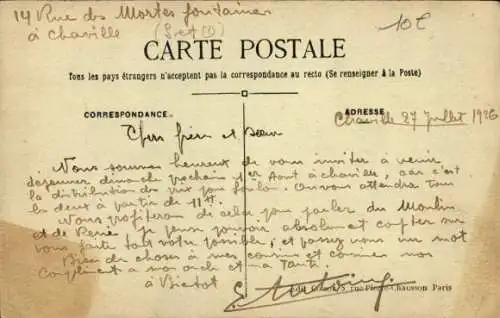 14 Rue des Mortes fontaines
à Chaville (S et O)
10E
CARTE POSTALE
Tous les pays étrangers n'acceptent pas la correspondance au recto (Se renseigner à la Poste)
CORRESPONDANCE
ADRESSE
Chaville 27 Juillet 1926
Cher frère et Sœur
Nous sommes heureux de vous inviter à venir
déjeuner dimache prochain 1er Aout à chaville, car c'est
la distribution des prix on vous attendra tous
les deux à partir de 11H.
Nous profiterons de cela pour parler du Moulin
et de René. Je pense pouvoir absolument compter sur
vous faite tout votre possible, et passez nous un mot
Bien de choses à mes cousins et comme nos
Compliment a mon oncle et ma Tante.
à Bientot
Edit Chausson Paris